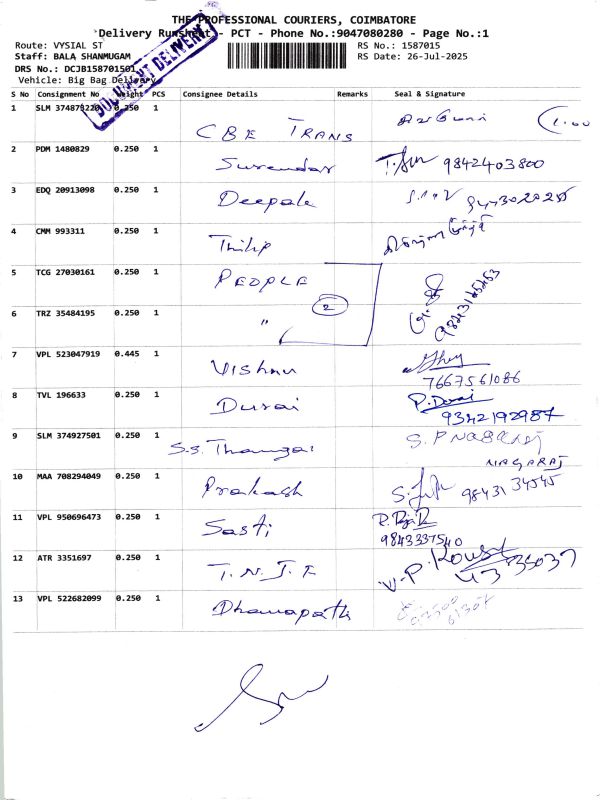 THE PROFESSIONAL COURIERS, COIMBATORE
Delivery Runsheet - PCT - Phone No.:9047080280 - Page No.:1
Route: VYSIAL ST
RS No.: 1587015
Staff: BALA SHANMUGAM
RS Date: 26-Jul-2025
DRS No.: DCJB158701501
Vehicle: Big Bag Delivery
DOCUMENT DELIVERY
S No Consignment No Weight PCS Consignee Details Remarks Seal & Signature
1 SLM 374873220 0.250 1 CBE TRANS 1.00
2 PDM 1480829 0.250 1 Surendar 9842403800
3 EDQ 20913098 0.250 1 Deepak
4 CMM 993311 0.250 1 Thilip
5 TCG 27030161 0.250 1 PEOPLE 2
6 TRZ 35484195 0.250 1 "
7 VPL 523047919 0.445 1 Vishnu
7667561086
8 TVL 196633 0.250 1 Durai P. Durai
9342192987
9 SLM 374927501 0.250 1 S.S. Thangai S. P Nagaraj
NAGARAJ
10 MAA 708294049 0.250 1 Prakash 98431 34545
11 VPL 950696473 0.250 1 Sasti
9843337540
12 ATR 3351697 0.250 1 T.N.J.F V.P.
13 VPL 522682099 0.250 1 Dhanapathi